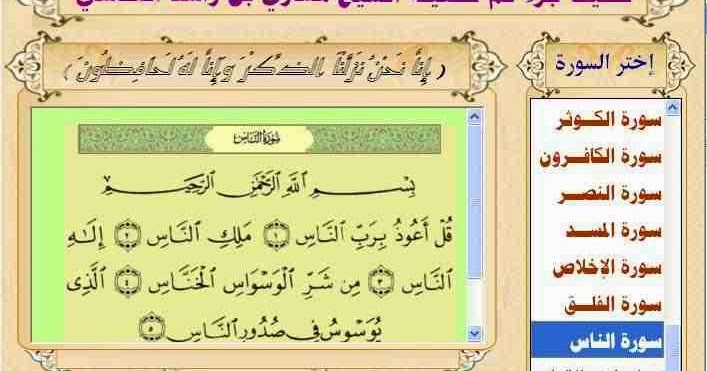 إختر السورة
( إِنَّا نَحْنُ نَزَّلْنَا الذِّكْرَ وَإِنَّا لَهُ لَحَافِظُونَ )
سورة الكوثر
سورة الكافرون
سورة النصر
سورة المسد
سورة الإخلاص
سورة الفلق
سورة الناس
سُورَةُ النَّاسِ
بِسْمِ ٱللَّهِ ٱلرَّحْمَٰنِ ٱلرَّحِيمِ
قُلْ أَعُوذُ بِرَبِّ ٱلنَّاسِ ١ مَلِكِ ٱلنَّاسِ ٢ إِلَٰهِ
ٱلنَّاسِ ٣ مِن شَرِّ ٱلْوَسْوَاسِ ٱلْخَنَّاسِ ٤ ٱلَّذِى
يُوَسْوِسُ فِى صُدُورِ ٱلنَّاسِ ٥